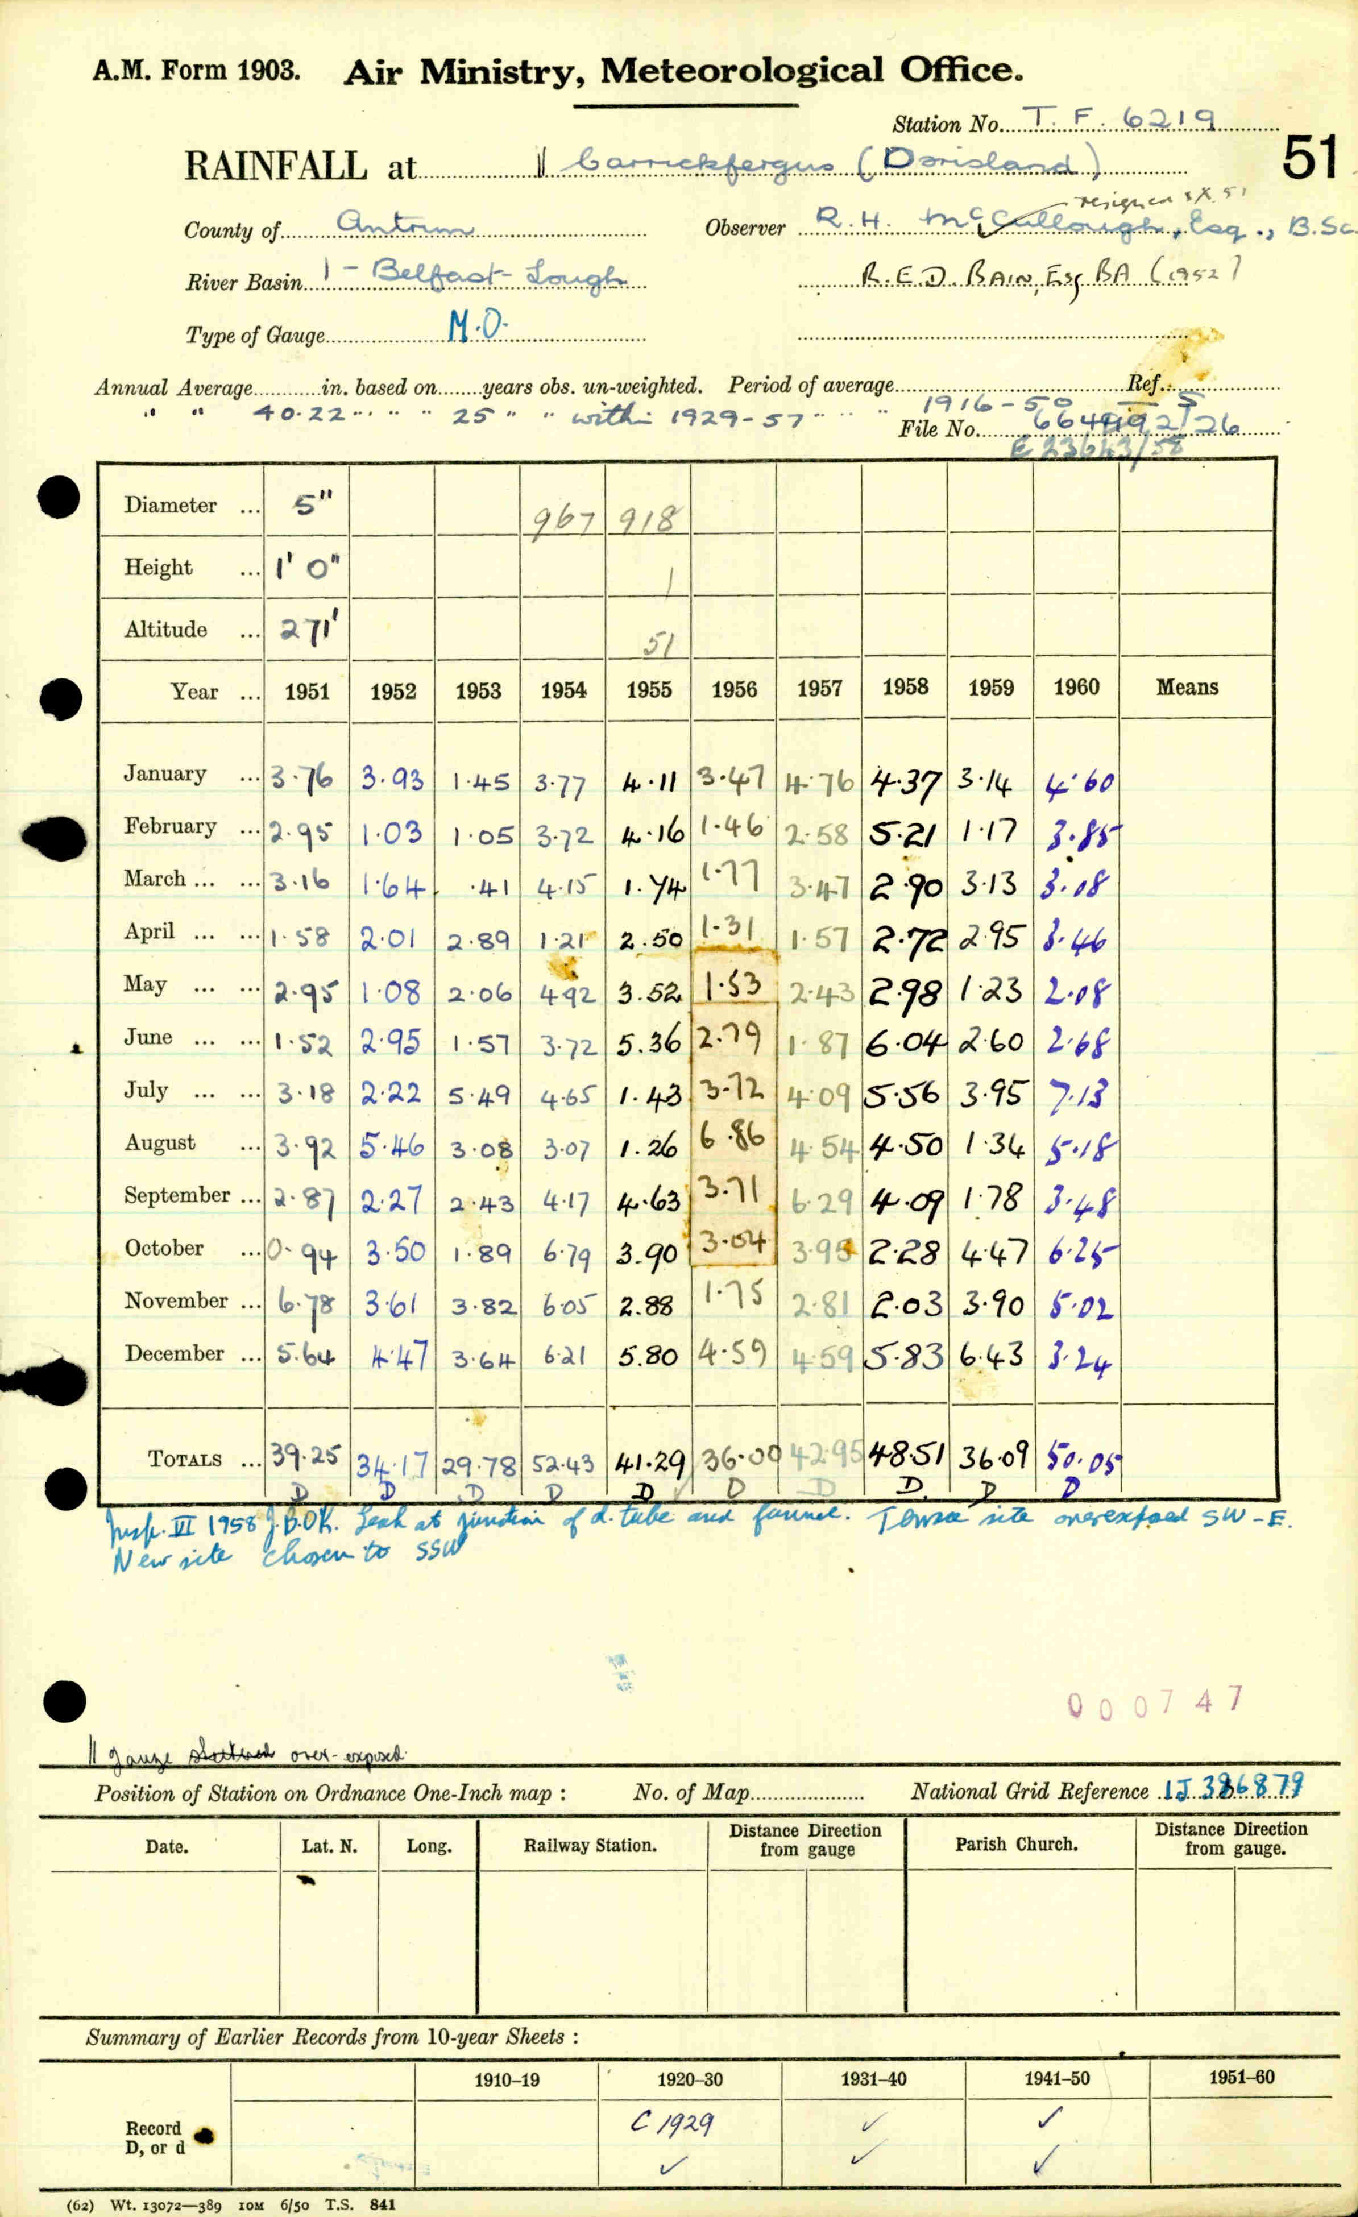 A.M. Form 1903. Air Ministry, Meteorological Office.
Station No. T. F. 6219
51
RAINFALL at || Carrickfergus (Dorisland)
resigned
County of Antrim Observer R. H. McCullough, Esq., B.Sc.
River Basin 1 - Belfast Lough R.E.D. BAIN, Esq BA (1952)
Type of Gauge M.O.
Annual Average in. based on years obs. un-weighted. Period of average Ref.
" " 40.22 " " " 25 " " within 1929-57 " " " 1916-50
File No.
E 23643/58
Diameter ... 5" 967 918
Height ... 1' 0" 1
Altitude ... 271' 51
Year ... 1951 1952 1953 1954 1955 1956 1957 1958 1959 1960 Means
January ... 3.76 3.93 1.45 3.77 4.11 3.47 4.76 4.37 3.14 4.60
February ... 2.95 1.03 1.05 3.72 4.16 1.46 2.58 5.21 1.17 3.85
March ... ... 3.16 1.64 .41 4.15 1.74 1.77 3.47 2.90 3.13 3.08
April ... ... 1.58 2.01 2.89 1.21 2.50 1.31 1.57 2.72 2.95 3.46
May ... ... 2.95 1.08 2.06 4.92 3.52 1.53 2.43 2.98 1.23 2.08
June ... ... 1.52 2.95 1.57 3.72 5.36 2.79 1.87 6.04 2.60 2.68
July ... ... 3.18 2.22 5.49 4.65 1.43 3.72 4.09 5.56 3.95 7.13
August ... 3.92 5.46 3.08 3.07 1.26 6.86 4.54 4.50 1.34 5.18
September ... 2.87 2.27 2.43 4.17 4.63 3.71 6.29 4.09 1.78 3.48
October ... 0.94 3.50 1.89 6.79 3.90 3.04 3.95 2.28 4.47 6.25
November ... 6.78 3.61 3.82 6.05 2.88 1.75 2.81 2.03 3.90 5.02
December ... 5.64 4.47 3.64 6.21 5.80 4.59 4.59 5.83 6.43 3.24
TOTALS ... 39.25 34.17 29.78 52.43 41.29 36.00 42.95 48.51 36.09 50.05
D D D D D ✓ D D D. D D
Insp. VII 1958 J.B.OK. Leak at junction of d. tube and funnel. site overexposed SW-E.
New site chosen to SSW
000747
|| gauge sheltered over-exposed
Position of Station on Ordnance One-Inch map : No. of Map National Grid Reference IJ 386879
Date. Lat. N. Long. Railway Station. Distance from Direction gauge Parish Church. Distance from Direction gauge.
Summary of Earlier Records from 10-year Sheets :
1910–19 1920–30 1931–40 1941–50 1951–60
Record C 1929 ✓ ✓
D, or d ✓ ✓ ✓
(62) Wt. 13072—389 10M 6/50 T.S. 841